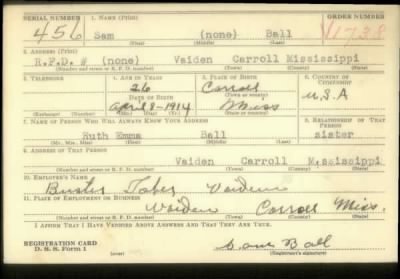 SERIAL NUMBER 1. NAME (Print) ORDER NUMBER
456 Sam (none) Ball V1738
(First) (Middle) (Last)
2. ADDRESS (Print)
R.F.D. # (none) Vaiden Carroll Mississippi
(Number and street or R. F. D. number) (Town) (County) (State)
3. TELEPHONE 4. AGE IN YEARS 5. PLACE OF BIRTH 6. COUNTRY OF CITIZENSHIP
26 Carroll
(Town or county)
DATE OF BIRTH U.S.A
April 8-1914 Miss
(Exchange) (Number) (Mo.) (Day) (Yr.) (State or country)
7. NAME OF PERSON WHO WILL ALWAYS KNOW YOUR ADDRESS 8. RELATIONSHIP OF THAT PERSON
Ruth Emma Ball sister
(Mr., Mrs., Miss) (First) (Middle) (Last)
9. ADDRESS OF THAT PERSON
Vaiden Carroll Mississippi
(Number and street or R. F. D. number) (Town) (County) (State)
10. EMPLOYER'S NAME
Vaiden
11. PLACE OF EMPLOYMENT OR BUSINESS
Vaiden Carroll Miss.
(Number and street or R. F. D. number) (Town) (County) (State)
I AFFIRM THAT I HAVE VERIFIED ABOVE ANSWERS AND THAT THEY ARE TRUE.
REGISTRATION CARD
D. S. S. Form 1 Sam Ball
(Registrant's signature)